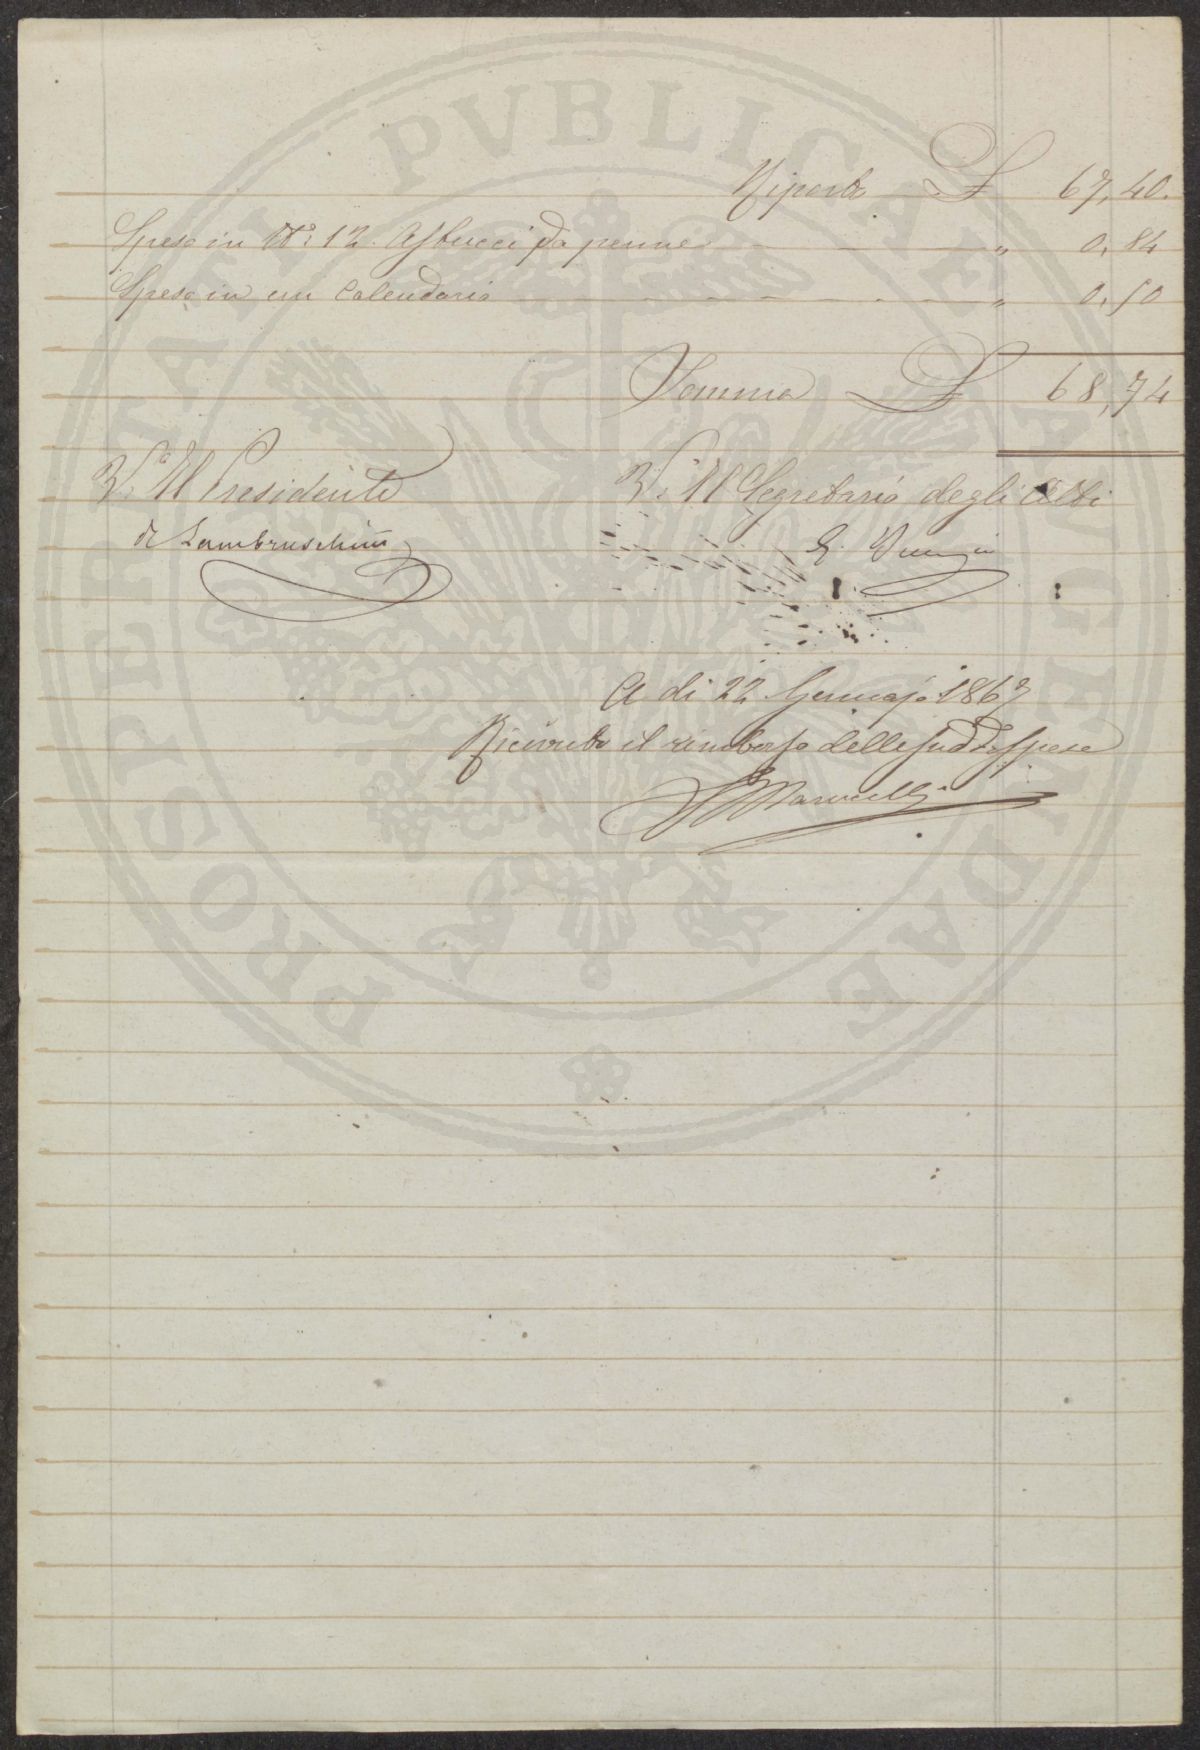 Riporto £ 67,40.
Speso in N°: 12. Astucci da penne " 0,84
Speso in un Calendario " 0,50
Somma £ 68,74
V.° Il Presidente
V.° Il Segretario degli Atti
R Lambruschini
A di 22 Gennajo 1867
Ricevuto il rimborso delle sudd.e spese
PROSPERITATI PVBLICAE AVGENDAE